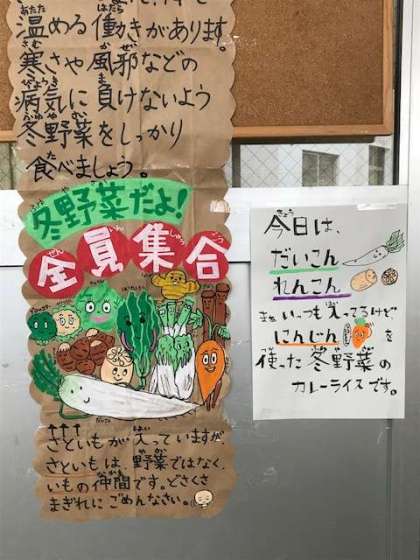 温める働きがあります。
寒さや風邪などの
病気に負けないよう
冬野菜をしっかり
食べましょう。
冬野菜だよ!
全員集合
↑↑↑
さといもが入っていますが
さといもは、野菜ではなく、
いもの仲間です。どさくさ
まぎれにごめんなさい。
今日は、
だいこん
れんこん
まあ いつも入ってるけど
にんじん を
使った冬野菜の
カレーライスです。